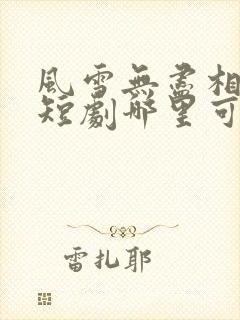 風雪無盡相
短劇哪里可
雷扎耶